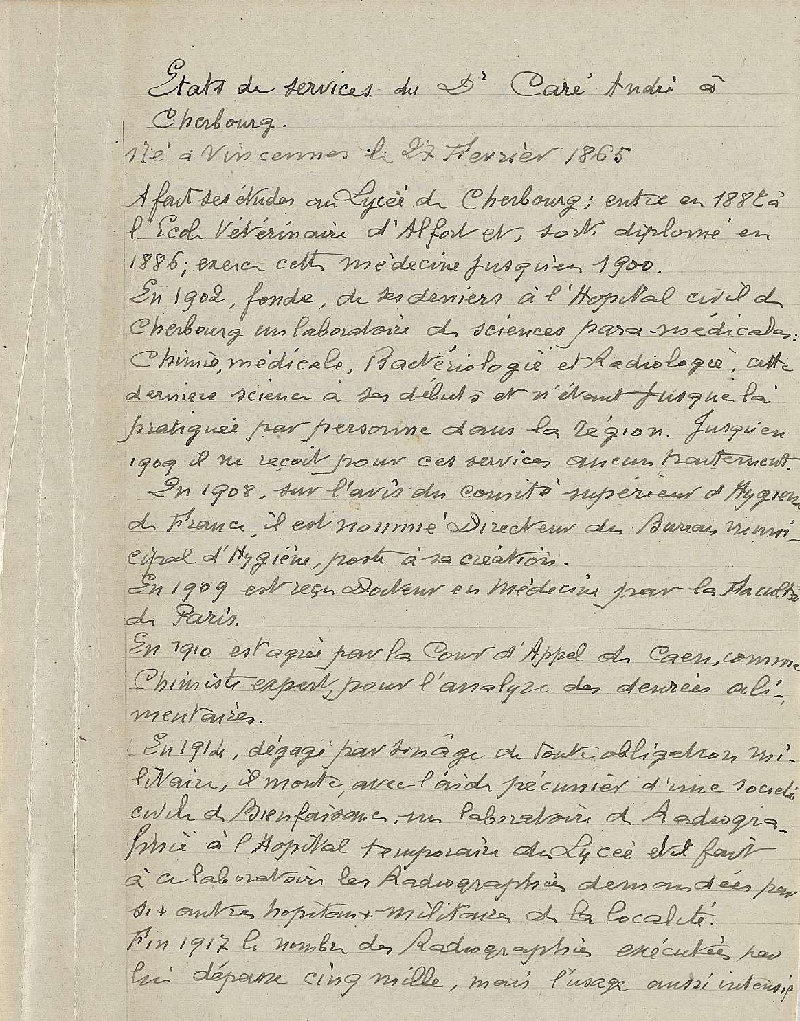 Etats de services du Dr Caré André à
Cherbourg.
Né à Vincennes le 27 Fevrier 1865
A fait ses études au Lycée de Cherbourg; entre en 1882 à
l'Ecole Vétérinaire d'Alfort et, sorti diplomé en
1886; exerce cette médecine jusqu'en 1900.
En 1902, fonde, de ses deniers à l'Hopital civil de
Cherbourg un laboratoire de sciences para-médicales:
Chimie, médicale, Bactériologie et Radiologie, cette
derniere science à ses débuts et n'étant jusque là
pratiquée par personne dans la région. Jusqu'en
1909 il ne reçoit pour ces services aucun traitement.
En 1908, sur l'avis du comité supérieur d'Hygiene
de France, il est nommé Directeur du Bureau muni-
cipal d'Hygiène, poste à sa création.
En 1909 est reçu Docteur en Médecine par la Faculté
de Paris.
En 1910 est agréé par la Cour d'Appel de Caen, comme
Chimiste expert, pour l'analyze des denrées ali-
mentaires.
En 1914, dégagé par son âge de toute obligation mi-
litaire, il monte, avec l'aide pécunier d'une société
civile de Bienfaisance un laboratoire de Radiogra-
phie à l'Hopital temporaire du Lycée et il fait
à ce laboratoire les Radiographies demandées par
six autres hopitaux militaires de la localité.
Fin 1917 le nombre des Radiographies exécutées par
lui dépasse cinq mille, mais l'usage aussi intensif